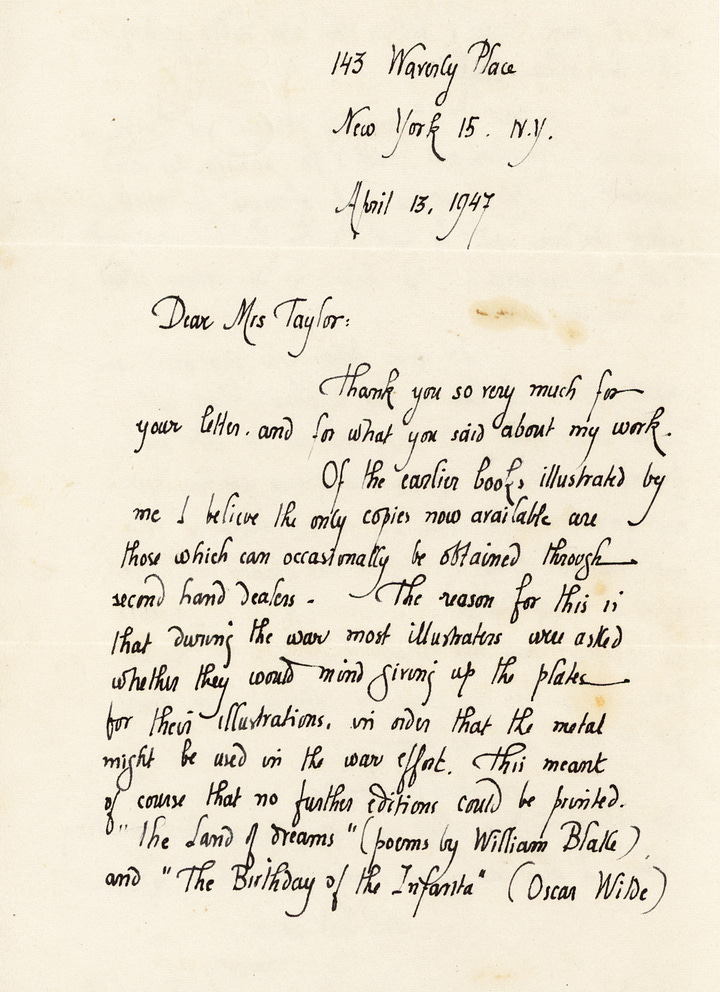 143 Waverly Place
New York 15. N.Y.
April 13, 1947
Dear Mrs Taylor:
Thank you so very much for
your letter. and for what you said about my work.
Of the earlier books illustrated by
me I believe the only copies now available are
those which can occasionally be obtained through
second hand dealers - The reason for this is
that during the war most illustrators were asked
whether they would mind giving up the plates
for their illustrations, in order that the metal
might be used in the war effort. This meant
of course that no further editions could be printed.
"The Land of dreams" (poems by William Blake),
and "The Birthday of the Infanta" (Oscar Wilde)